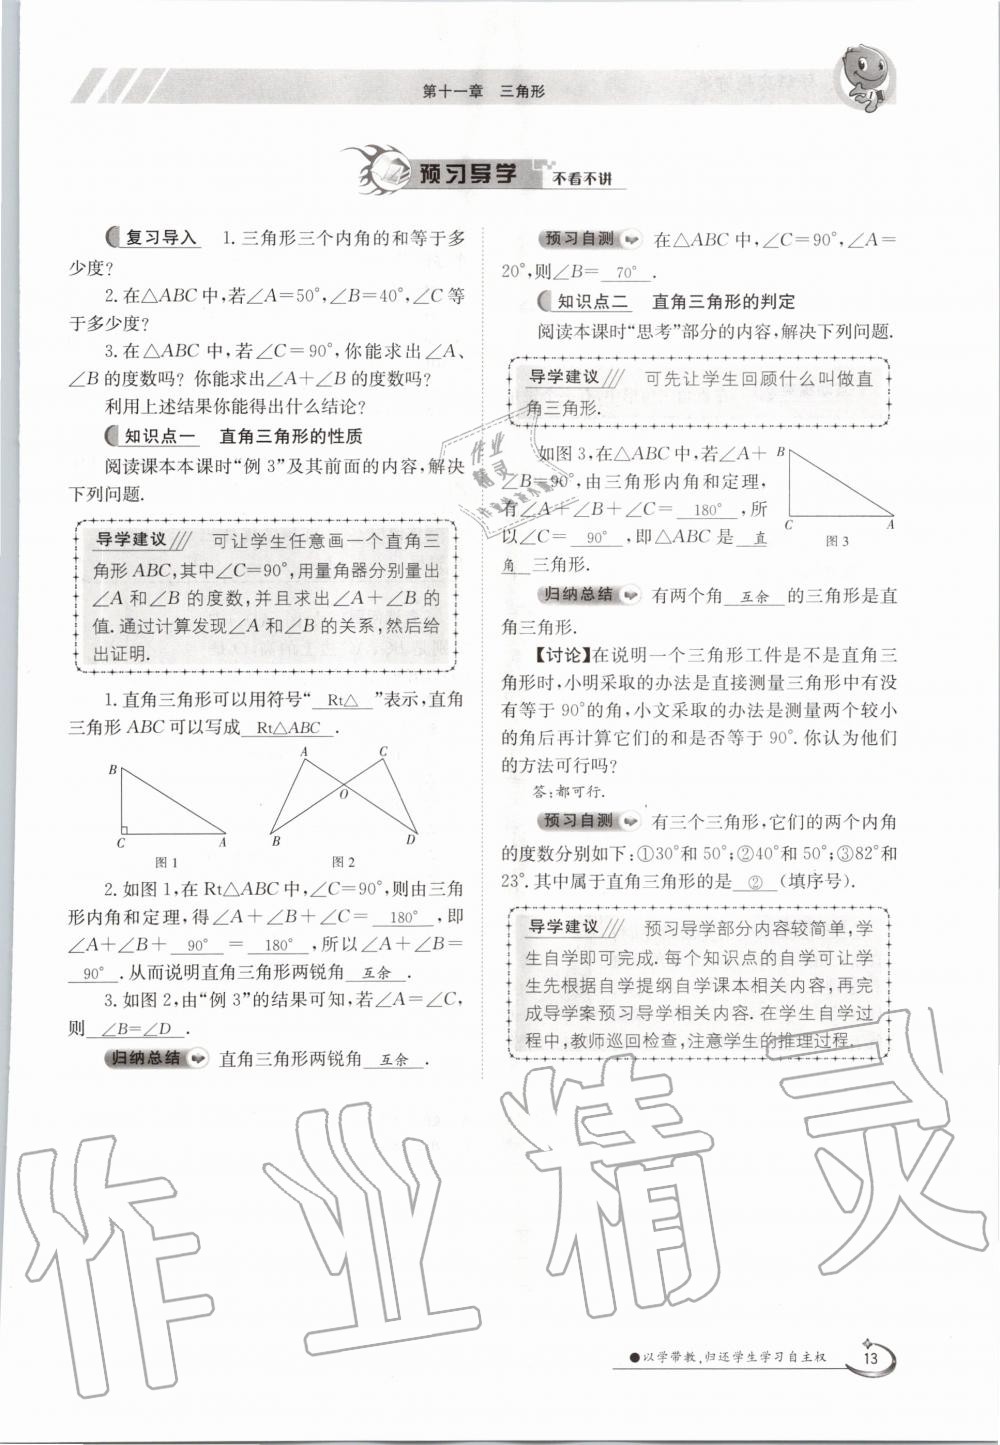 第十一章 三角形
预习导学 不看不讲
复习导入 1.三角形三个内角的和等于多
少度?
2.在△ABC中,若∠A=50°,∠B=40°,∠C等
于多少度?
3.在△ABC中,若∠C=90°,你能求出∠A、
∠B的度数吗? 你能求出∠A+∠B的度数吗?
利用上述结果你能得出什么结论?
知识点一 直角三角形的性质
阅读课本本课时“例3”及其前面的内容,解决
下列问题.
导学建议 可让学生任意画一个直角三
角形ABC,其中∠C=90°,用量角器分别量出
∠A和∠B的度数,并且求出∠A+∠B的
值.通过计算发现∠A和∠B的关系,然后给
出证明.
1.直角三角形可以用符号“ Rt△ ”表示,直角
三角形ABC可以写成 Rt△ABC .
B
C
A
图1
A
C
O
B
D
图2
2.如图1,在Rt△ABC中,∠C=90°,则由三角
形内角和定理,得∠A+∠B+∠C= 180° ,即
∠A+∠B+ 90° = 180° ,所以∠A+∠B=
90° .从而说明直角三角形两锐角 互余 .
3.如图2,由“例3”的结果可知,若∠A=∠C,
则 ∠B=∠D .
归纳总结 直角三角形两锐角 互余 .
预习自测 在△ABC中,∠C=90°,∠A=
20°,则∠B= 70° .
知识点二 直角三角形的判定
阅读本课时“思考”部分的内容,解决下列问题.
导学建议 可先让学生回顾什么叫做直
角三角形.
如图3,在△ABC中,若∠A+
∠B=90°,由三角形内角和定理,
有∠A+∠B+∠C= 180° ,所
以∠C= 90° ,即△ABC是 直
角 三角形.
B
C
A
图3
归纳总结 有两个角 互余 的三角形是直
角三角形.
【讨论】在说明一个三角形工件是不是直角三
角形时,小明采取的办法是直接测量三角形中有没
有等于90°的角,小文采取的办法是测量两个较小
的角后再计算它们的和是否等于90°.你认为他们
的方法可行吗?
答:都可行.
预习自测 有三个三角形,它们的两个内角
的度数分别如下:①30°和50°;②40°和50°;③82°和
23°.其中属于直角三角形的是 ② (填序号).
导学建议 预习导学部分内容较简单,学
生自学即可完成.每个知识点的自学可让学
生先根据自学提纲自学课本相关内容,再完
成导学案预习导学相关内容.在学生自学过
程中,教师巡回检查,注意学生的推理过程.
作业精灵
作业
精灵
●以学带教,归还学生学习自主权
13